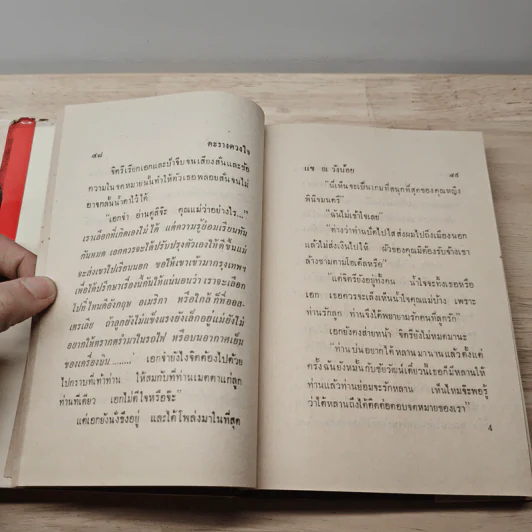 ๔๘
ตะรางดวงใจ
จิตรีเรียกเอกและป้าจีบจนเสียงสั่นและข้อ
ความในจดหมายนั้นทำให้ตัวเธอพลอยสั่นจนไม่
อาจกลั้นน้ำตาไว้ได้
"เอกจ๋า อ่านดูสิจ๊ะ คุณแม่ว่าอย่างไร..."
เราเลือกที่เกิดเองไม่ได้ แต่ความรู้ย่อมเรียนทัน
กันหมด เอกควรจะได้ปรับปรุงตัวเองให้ดีขึ้นแม่
จะส่งเขาไปเรียนนอก ขอให้เขาเข้ามากรุงเทพฯ
เพื่อได้ปรึกษาเรื่องนี้กันให้แน่นอนว่า เราจะเลือก
ไปที่ไหนดีอังกฤษ อเมริกา หรือใกล้ ก็ที่ออส-
เตรเลีย ถ้าลูกยังไม่แข็งแรงยังเล็กอยู่แม่ยังไม่
อยากให้ตรากตรำมาในรถไฟ หรือบนอากาศเย็น
ของเครื่องบิน ........" เอกจ๋ายังไงจิตต้องไปด้วย
ไปกราบที่เท้าท่าน ให้สมกับที่ท่านเมตตาแก่ลูก
ท่านทีเดียว เอกไม่ดีใจหรือจ๊ะ"
แต่เอกยังนั่งขึงอยู่ และได้โพล่งมาในที่สุด
แข ณ วังน้อย
๔๙
"นี่เห็นจะเป็นเกมที่สนุกที่สุดของคุณหญิง
พินิจมนตรี"
"ฉันไม่เข้าใจเลย"
"ทางว่าท่านบัดไปใสส่งผมไปถึงเมืองนอก
แล้วไม่ส่งเงินไปให้ ผัวของคุณมิต้องรับจ้างเขา
ล้างชามตามโฮเต็ลหรือ"
"แต่จิตรียังอยู่ทั้งคน น้ำใจจะทิ้งเธอหรือ
เอก เธอควรจะเล็งเห็นน้ำใจคุณแม่บ้าง เพราะ
ท่านรักลูก ท่านจึงได้พยายามรักคนที่ลูกรัก"
เอกยังคงส่ายหน้า จิตรียังไม่หมดมานะ
"ท่านบ่นอยากได้หลานมานานแล้วตั้งแต่
ครั้งฉันยังหมกับชัยวัฒน์เดี๋ยวนี้เธอก็มีหลานให้
ท่านแล้วท่านย่อมจะรักหลาน เห็นไหมจ๊ะพอรู้
ว่าได้หลานถึงได้คิดต่อตอบจดหมายของเรา"
4